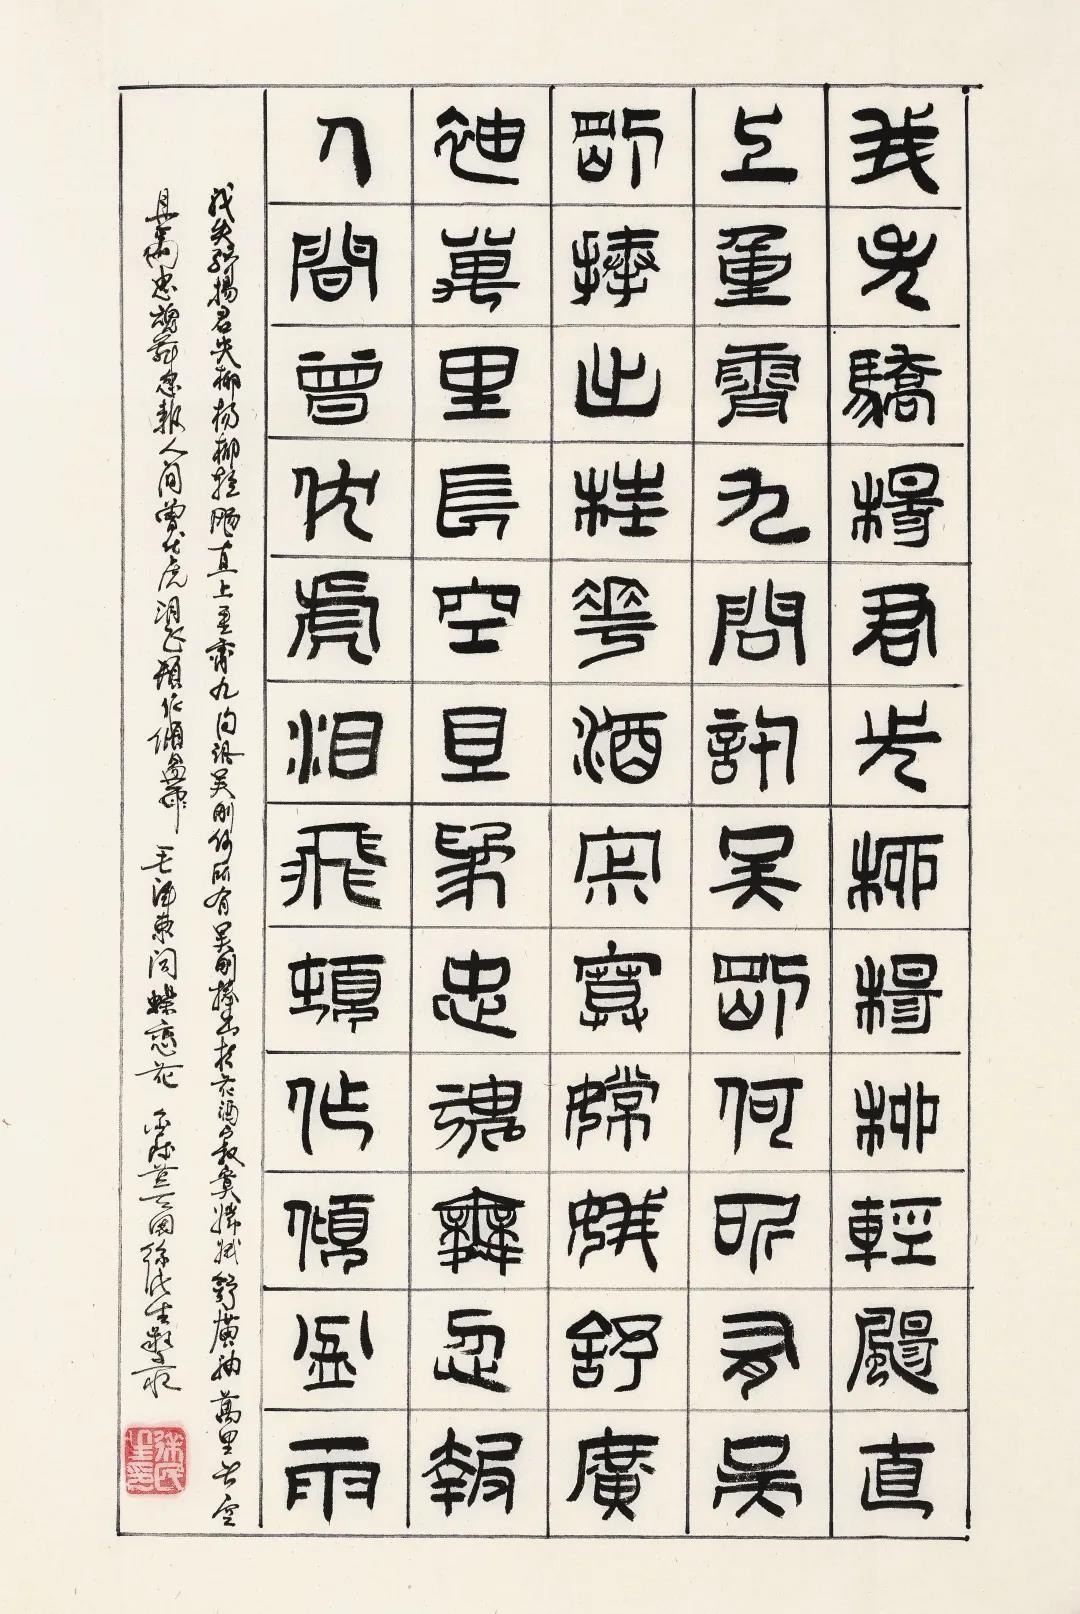 我失驕楊君失柳楊柳輕颺直
上重霄九問訊吴剛何所有吴
剛捧出桂花酒寂寞嫦娥舒廣
袖萬里長空且爲忠魂舞忽報
人間曾伏虎淚飛頓作傾盆雨
我失驕楊君失柳楊柳輕颺直上重霄九问訊吴刚何所有吴刚捧出桂花酒寂寞嫦娥舒廣袖萬里长空
且為忠魂舞忽報人间曾伏虎泪飞頓作傾盆雨 毛澤東詞蝶戀花